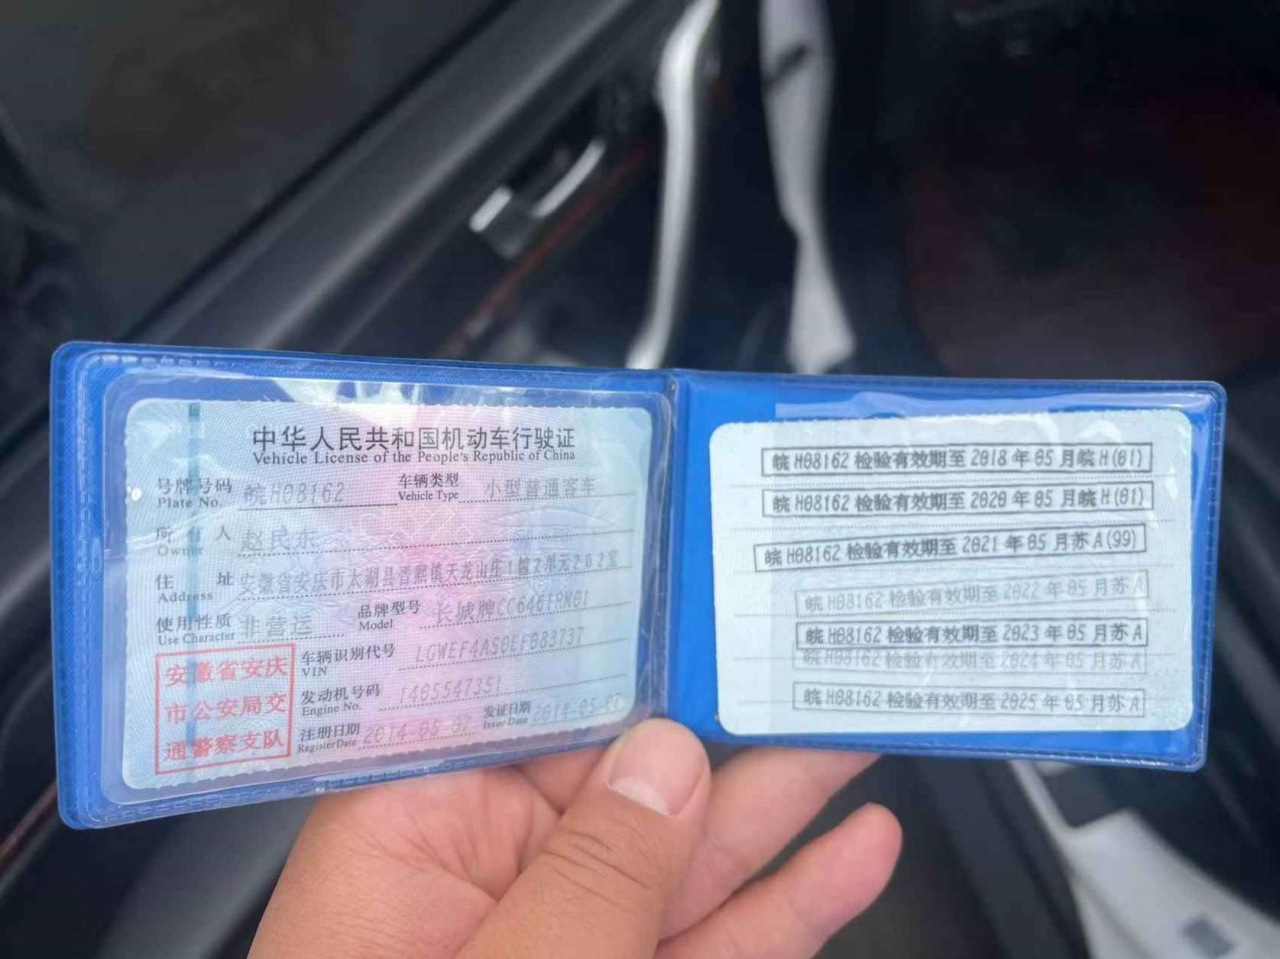 中华人民共和国机动车行驶证
Vehicle License of the People's Republic of China
号牌号码 皖H08162 车辆类型 小型普通客车
Plate No. Vehicle Type
所有人 赵民东
Owner
住址 安徽省安庆市太湖县晋熙镇天龙山庄1幢2单元202室
Address
使用性质 非营运 品牌型号 长城牌CC6461RM01
Use Character Model
车辆识别代号 LGWEF4A50EF083737
VIN
发动机号码 1405547351
Engine No.
注册日期 2014-05-07 发证日期 2014-05-
Register Date Issue Date
安徽省安庆
市公安局交
通警察支队
皖H08162检验有效期至2018年05月皖H(01)
皖H08162检验有效期至2020年05月皖H(01)
皖H08162检验有效期至2021年05月苏A(99)
皖H08162检验有效期至2022年05月苏A
皖H08162检验有效期至2023年05月苏A
皖H08162检验有效期至2024年05月苏A
皖H08162检验有效期至2025年05月苏A